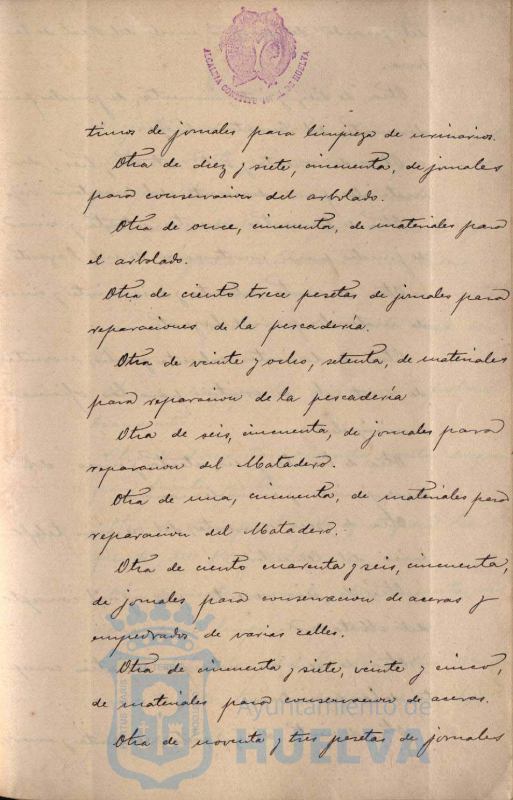 ALCALDIA CONSTITUCIONAL DE HUELVA
timos de jornales para limpieza de urinarios.
Otra de diez y siete, cincuenta, de jornales
para conservacion del arbolado.
Otra de once, cincuenta, de materiales para
el arbolado.
Otra de ciento trece pesetas de jornales para
reparaciones de la pescadería.
Otra de veinte y ocho, setenta, de materiales
para reparacion de la pescadería
Otra de seis, cincuenta, de jornales para
reparacion del Matadero.
Otra de una, cincuenta, de materiales para
reparacion del Matadero.
Otra de ciento cuarenta y seis, cincuenta,
de jornales para conservacion de aceras y
empedrados de varias calles.
Otra de cincuenta y siete, veinte y cinco,
de materiales para conservacion de aceras.
Otra de noventa y tres pesetas de jornales
Ayuntamiento de
HUELVA